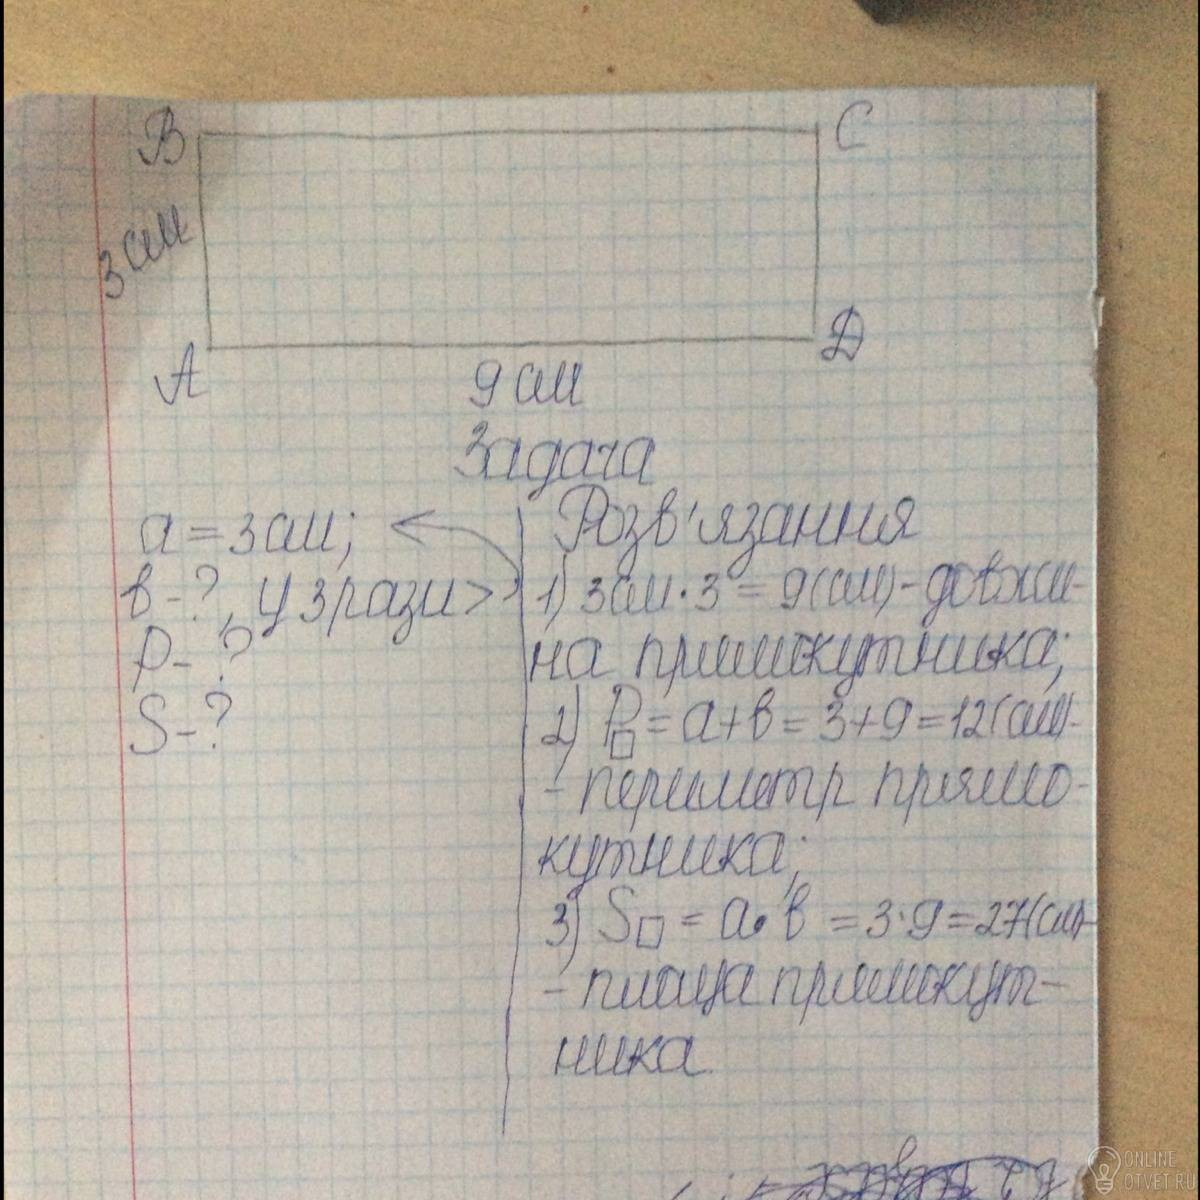 В
С
3 см
А
Д
9 см
Задача
а = 3 см;
в - ?, у 3 рази >
Р - ?
S - ?
Розв'язання
1) 3 см · 3 = 9 (см) - довжи-
на прямокутника;
2) Р□ = а + в = 3 + 9 = 12 (см) -
- периметр прямо-
кутника;
3) S□ = а · в = 3 · 9 = 27 (см) -
- площа прямокут-
ника.
ONLINE
OTVET.RU